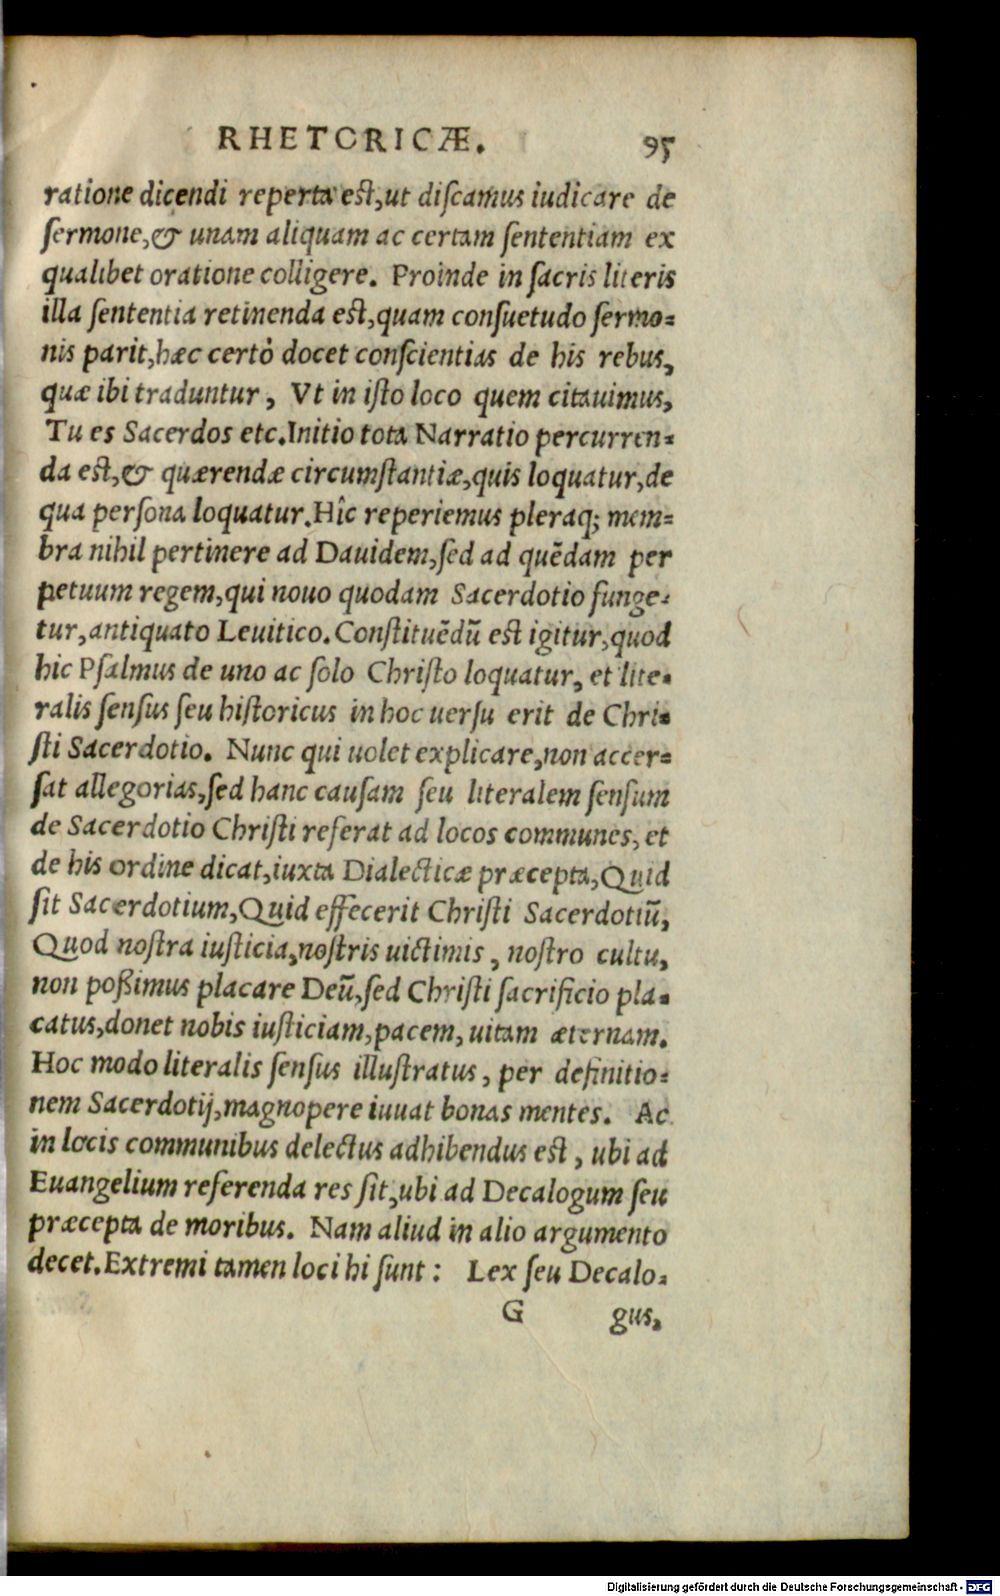 RHETORICÆ. 95
ratione dicendi reperta est, ut discamus iudicare de
sermone, & unam aliquam ac certam sententiam ex
qualibet oratione colligere. Proinde in sacris literis
illa sententia retinenda est, quam consuetudo sermo=
nis parit, hæc certò docet conscientias de his rebus,
quæ ibi traduntur, Vt in isto loco quem citauimus,
Tu es Sacerdos etc. Initio tota Narratio percurren=
da est, & quærendæ circumstantiæ, quis loquatur, de
qua persona loquatur. Hîc reperiemus pleraq; mem=
bra nihil pertinere ad Dauidem, sed ad quēdam per
petuum regem, qui nouo quodam Sacerdotio funge=
tur, antiquato Leuitico. Constituēdū est igitur, quod
hic Psalmus de uno ac solo Christo loquatur, et lite=
ralis sensus seu historicus in hoc uersu erit de Chri=
sti Sacerdotio. Nunc qui uolet explicare, non accer=
sat allegorias, sed hanc causam seu literalem sensum
de Sacerdotio Christi referat ad locos communes, et
de his ordine dicat, iuxta Dialecticæ præcepta, Quid
sit Sacerdotium, Quid effecerit Christi Sacerdotiū,
Quod nostra iusticia, nostris uictimis, nostro cultu,
non poßimus placare Deū, sed Christi sacrificio pla=
catus, donet nobis iusticiam, pacem, uitam æternam.
Hoc modo literalis sensus illustratus, per definitio=
nem Sacerdotij, magnopere iuuat bonas mentes. Ac
in locis communibus delectus adhibendus est, ubi ad
Euangelium referenda res sit, ubi ad Decalogum seu
præcepta de moribus. Nam aliud in alio argumento
decet. Extremi tamen loci hi sunt: Lex seu Decalo=
G gus,
Digitalisierung gefördert durch die Deutsche Forschungsgemeinschaft - DFG